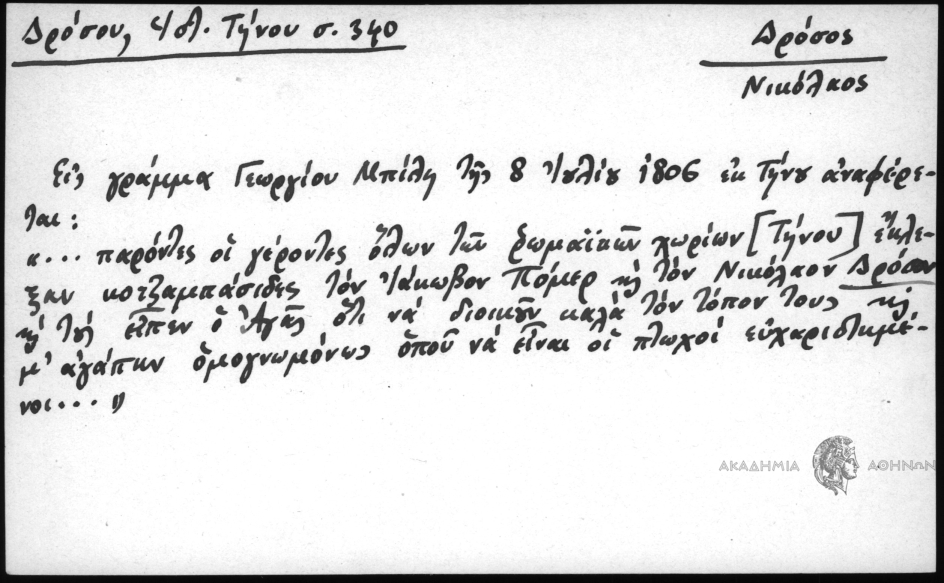 Δρόσου, Ἱστ. Τήνου σ. 340
Δρόσος
Νικόλαος
Εἰς γράμμα Γεωργίου Μπίλη τῆς 8 Ἰουλίου 1806 ἐκ Τήνου ἀναφέρε-
ται:
«... παρόντες οἱ γέροντες ὅλων τῶν ῥωμαϊκῶν χωρίων [Τήνου] ἔκλε-
ξαν κοτζαμπάσιδες τὸν Ἰάκωβον Πόμερ κὴ τὸν Νικόλαον Δρόσον
κὴ τοὺς εἶπεν ὁ Ἀγᾶς ὅτι νὰ διοικοῦν καλὰ τὸν τόπον τους κὴ
μ' ἀγάπην ὁμογνωμόνως ὁποῦ νὰ εἶναι οἱ πτωχοί εὐχαριστημέ-
νοι... »
ΑΚΑΔΗΜΙΑ ΑΘΗΝΩΝ